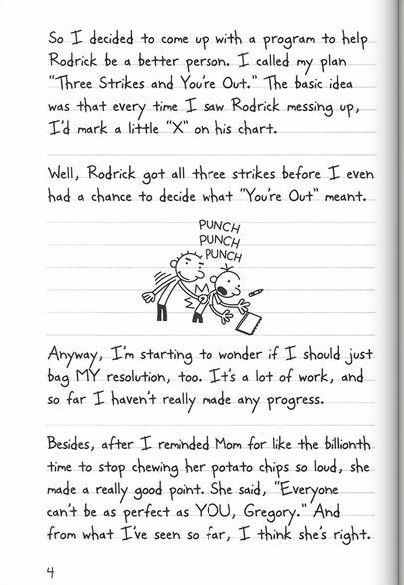 So I decided to come up with a program to help
Rodrick be a better person. I called my plan
"Three Strikes and You're Out." The basic idea
was that every time I saw Rodrick messing up,
I'd mark a little "X" on his chart.
Well, Rodrick got all three strikes before I even
had a chance to decide what "You're Out" meant.
PUNCH
PUNCH
PUNCH
Anyway, I'm starting to wonder if I should just
bag MY resolution, too. It's a lot of work, and
so far I haven't really made any progress.
Besides, after I reminded Mom for like the billionth
time to stop chewing her potato chips so loud, she
made a really good point. She said, "Everyone
can't be as perfect as YOU, Gregory." And
from what I've seen so far, I think she's right.
4